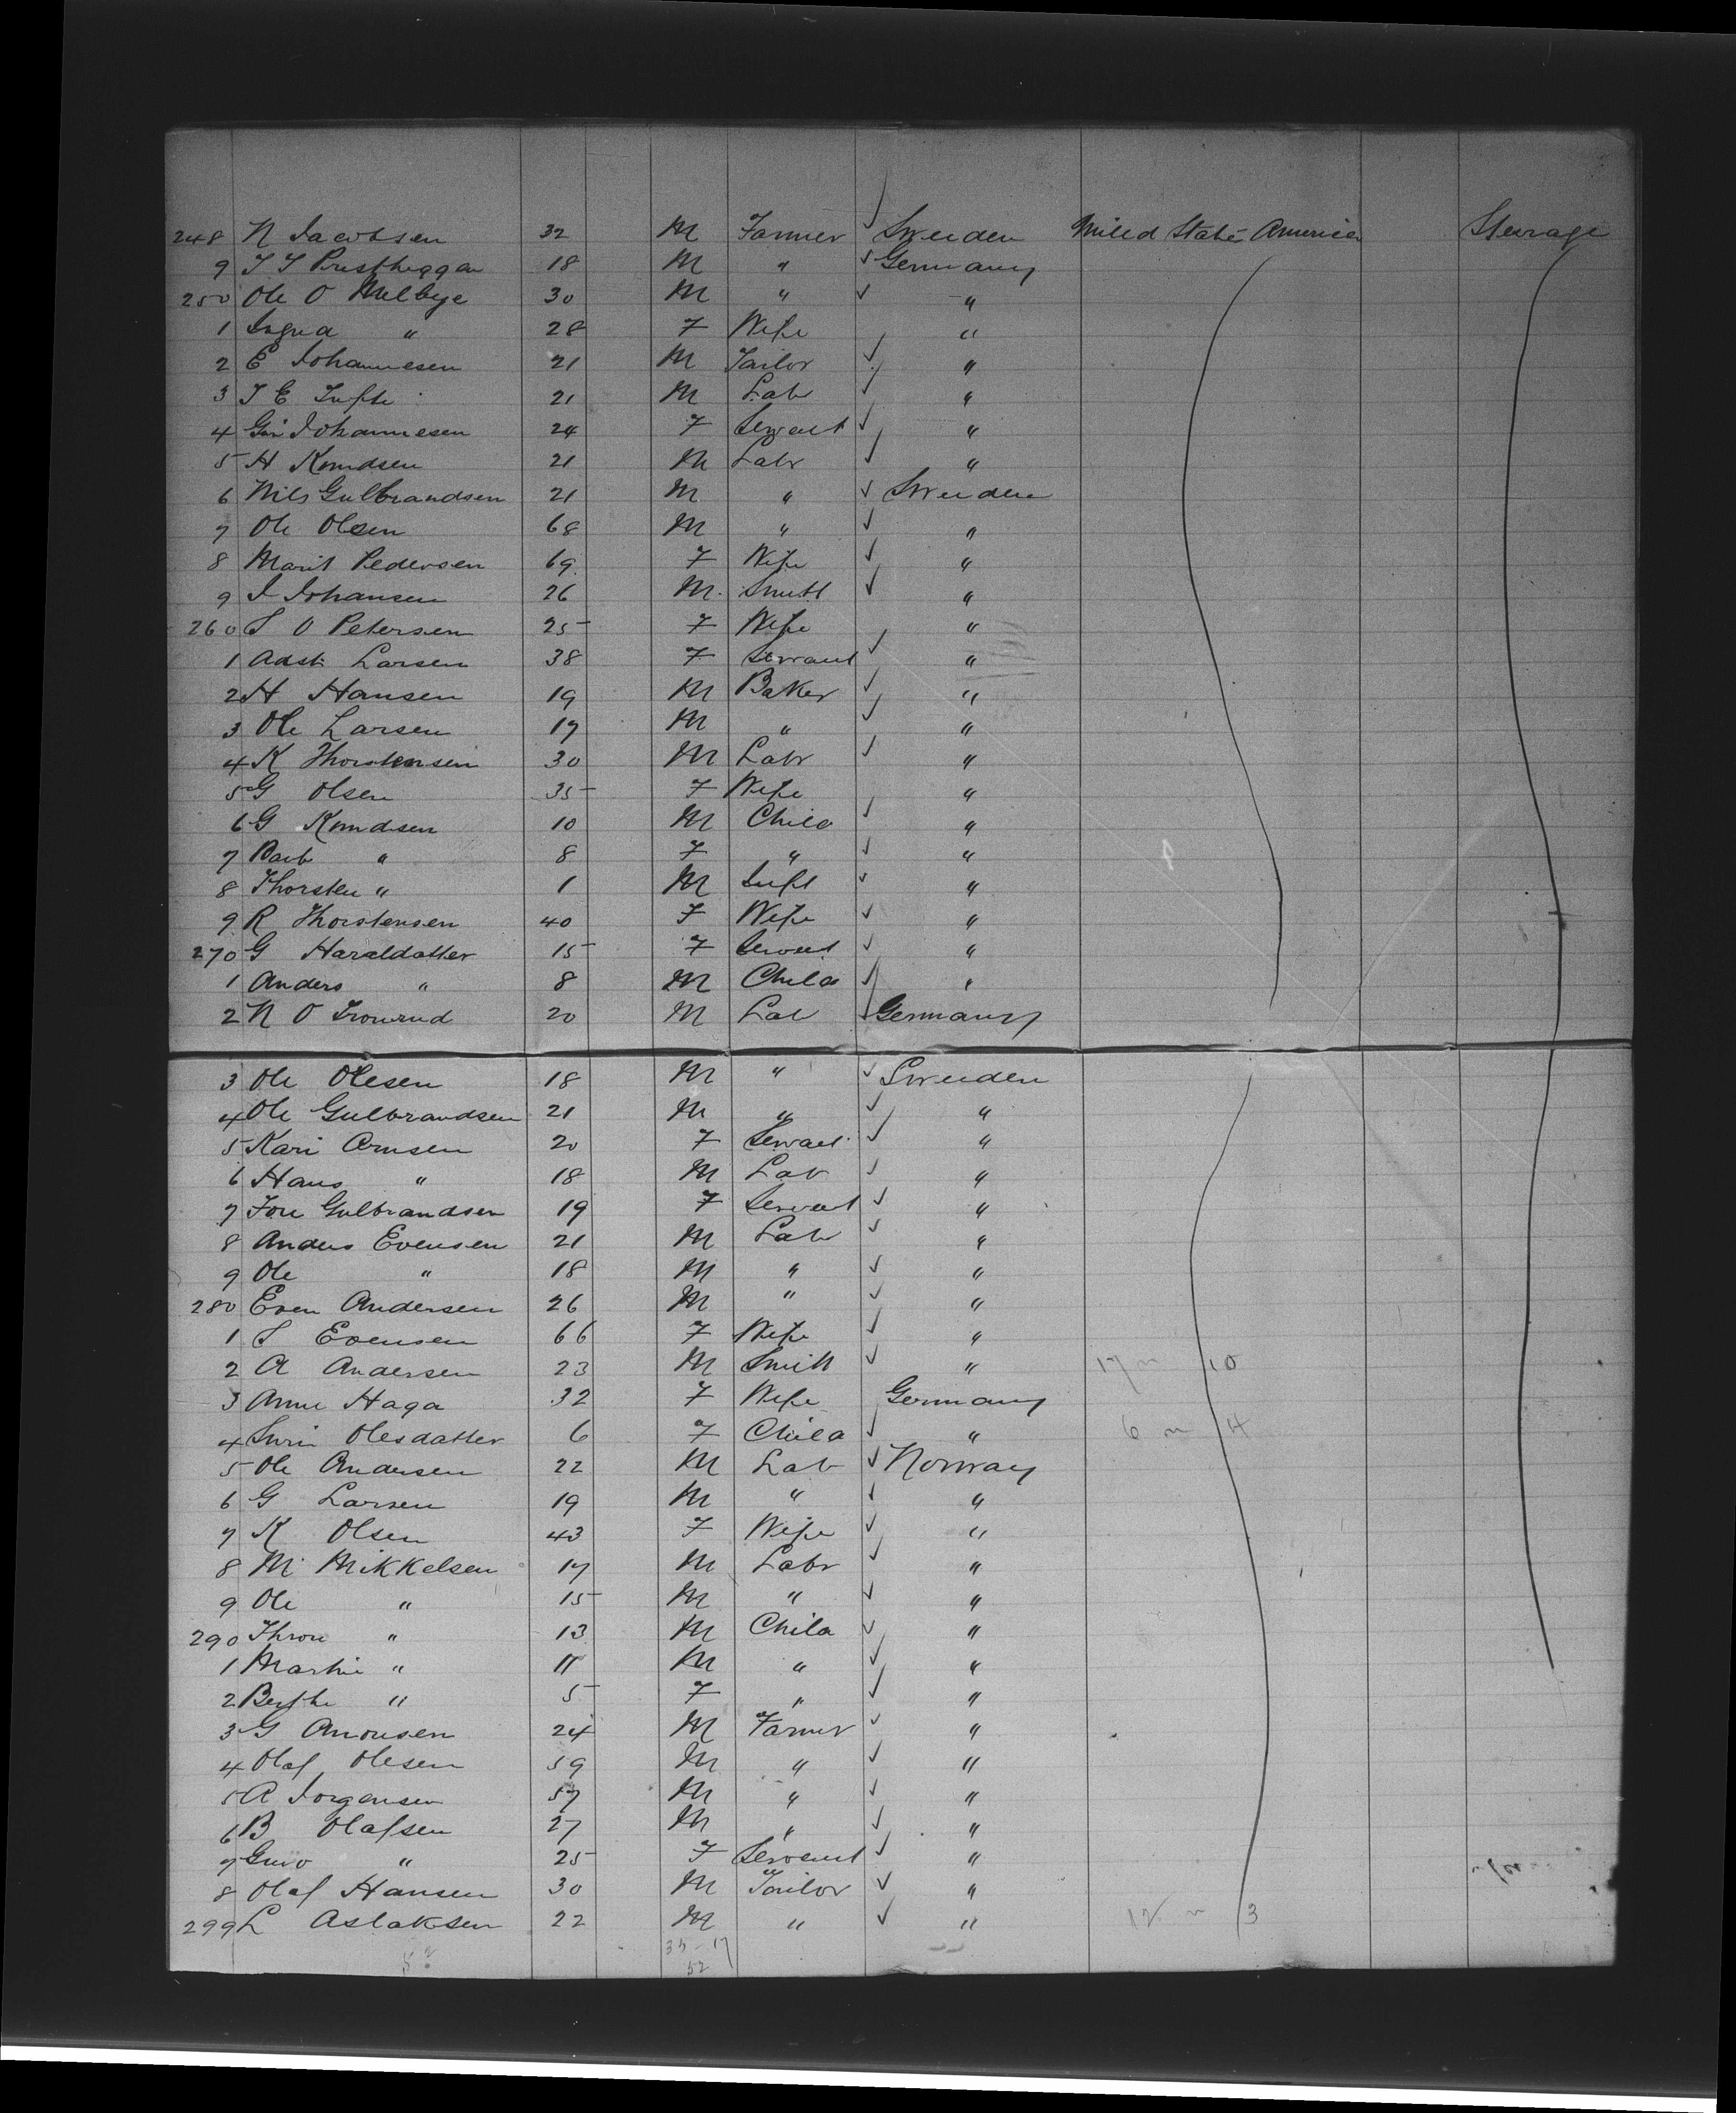 248 N Jacobsen 32 M Farmer ✓ Sweden United State America Steerage
9 18 M " ✓ Germany
250 Ole O Melbye 30 M " ✓ "
1 Ingrid " 28 F Wife "
2 E Johannesen 21 M Tailor ✓ "
3 J E 21 M Lab ✓ "
4 Johannesen 24 F Servant ✓ "
5 H Knudsen 21 M Labr ✓ "
6 Nils Gulbrandsen 21 M " ✓ Sweden
7 Ole Olsen 68 M " ✓ "
8 Marit Pedersen 69 F Wife ✓ "
9 J Johansen 26 M Smith ✓ "
260 S O Petersen 25 F Wife "
1 Larsen 38 F Servant ✓ "
2 H Hansen 19 M Baker ✓ "
3 Ole Larsen 19 M " ✓ "
4 K Thorstensen 30 M Labr ✓ "
5 G Olsen 35 F Wife "
6 G Knudsen 10 M Child ✓ "
7 Barb " 8 F " ✓ "
8 Thorsten " 1 M Inft ✓ "
9 R Thorstensen 40 F Wife ✓ "
270 G Haraldatter 15 F Servant ✓ "
1 Anders " 8 M Child ✓ "
2 N O 20 M Lab ✓ Germany
3 Ole Olesen 18 M " ✓ Sweden
4 Ole Gulbrandsen 21 M " ✓ "
5 Kari Arnsen 20 F Servant ✓ "
6 Hans " 18 M Lab ✓ "
7 Gulbrandsen 19 F Servant ✓ "
8 Anders Evensen 21 M Lab ✓ "
9 Ole " 18 M " ✓ "
280 Even Andersen 26 M " ✓ "
1 S Evensen 66 F Wife ✓ "
2 A Andersen 23 M Smith ✓ " 17 10
3 Anne Haga 32 F Wife Germany
4 Olesdatter 6 F Child ✓ " 6 4
5 Ole Andersen 22 M Lab ✓ Norway
6 G Larsen 19 M " ✓ "
7 K Olsen 43 F Wife ✓ "
8 M Mikkelsen 17 M Labr ✓ "
9 Ole " 15 M " ✓ "
290 " 13 M Child ✓ "
1 Martin " 11 M " ✓ "
2 Berthe " 5 F " ✓ "
3 G 24 M Farmer ✓ "
4 Olaf Olesen 59 M " ✓ "
5 A Jorgensen 57 M " ✓ "
6 B Olafsen 27 M " ✓ "
7 Guro " 25 F Servant ✓ "
8 Olaf Hansen 30 M Tailor ✓ "
299 L Aslaksen 22 M " ✓ " 12 3
35-17
52 52